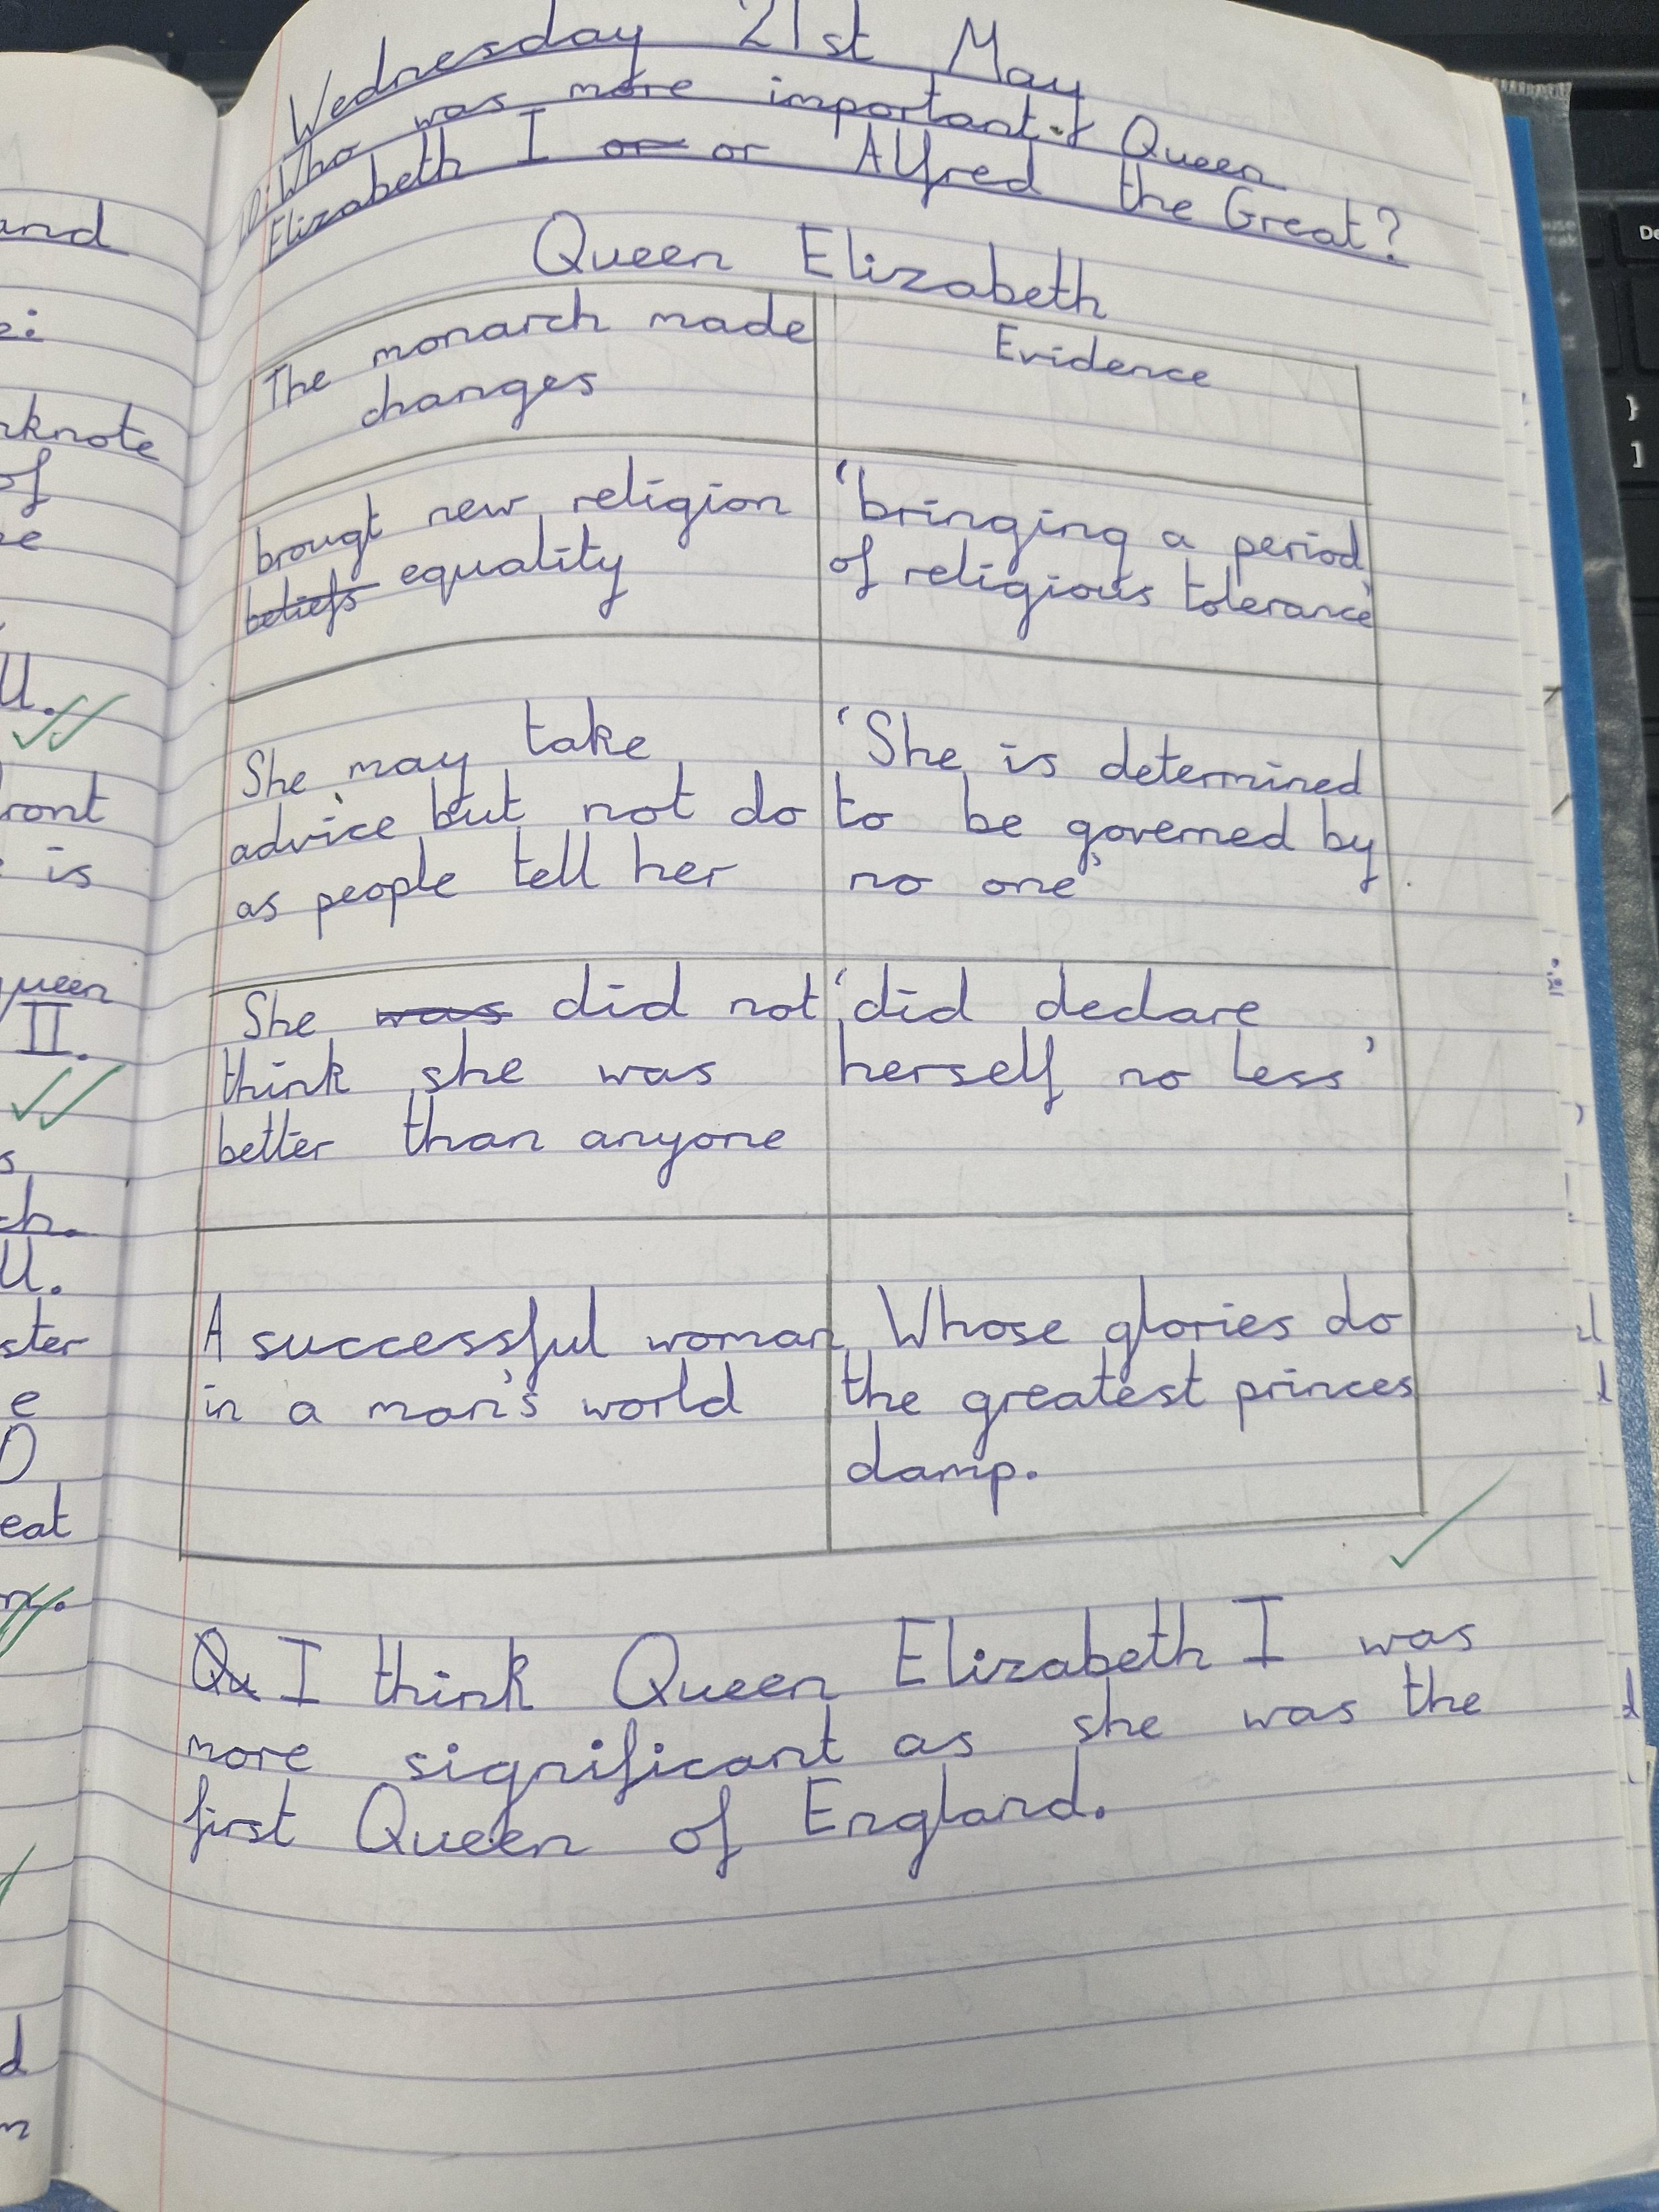 Wednesday 21st May
LO: Who was more important, Queen
Elizabeth I or or Alfred the Great?
Queen Elizabeth
The monarch made
changes
Evidence
brougt new religion
beliefs equality
'bringing a period
of religious tolerance'
She may take
advice but not do
as people tell her
'She is determined
to be governed by
no one'
She was did not
think she was
better than anyone
'did declare
herself no less'
A successful woman
in a man's world
Whose glories do
the greatest princes
damp.
Qu I think Queen Elizabeth I was
more significant as she was the
first Queen of England.
and
e:
rknote
of
e
ll.
ront
is
ueen
II.
s
ch.
ll.
ster
e
D
eat
d
n